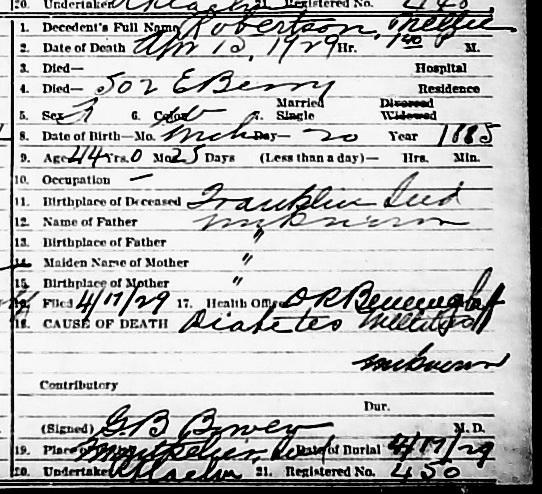 20. Undertaker 21. Registered No. 448
1. Decedent's Full Name Robertson, Nellie
2. Date of Death Apr 15, 1929 Hr. 1 40 P M.
3. Died— Hospital
4. Died— 502 E Berry Residence
5. Sex F 6. Color 7. Married Single Divorced Widowed
8. Date of Birth—Mo. Mch Day— 20 Year 1885
9. Age 44 Yrs. 0 Mo. 25 Days (Less than a day)— Hrs. Min.
10. Occupation —
11. Birthplace of Deceased Franklin Ind
12. Name of Father unknown
13. Birthplace of Father "
14. Maiden Name of Mother "
15. Birthplace of Mother "
16. Filed 4/17/29 17. Health Officer
18. CAUSE OF DEATH Diabetes Mellitus
unknown
Contributory
Dur.
(Signed) G. B. M.D.
19. Place of Montpelier, Ind Date of Burial 4/17/29
20. Undertaker 21. Registered No. 450